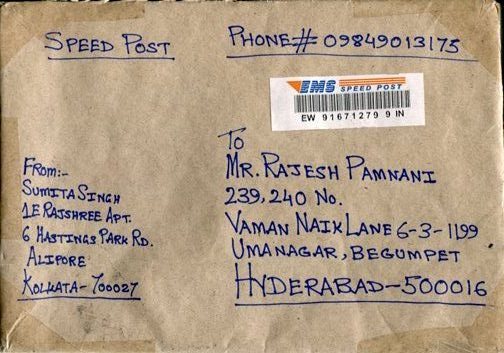 SPEED POST
PHONE# 09849013175
EMS SPEED POST
EW 91671279 9 IN
To
MR. RAJESH PAMNANI
239, 240 NO.
VAMAN NAIK LANE 6-3-1199
UMANAGAR, BEGUMPET
HYDERABAD-500016
FROM:-
SUMITA SINGH
1E RAJSHREE APT.
6 HASTINGS PARK RD.
ALIPORE
KOLKATA-700027